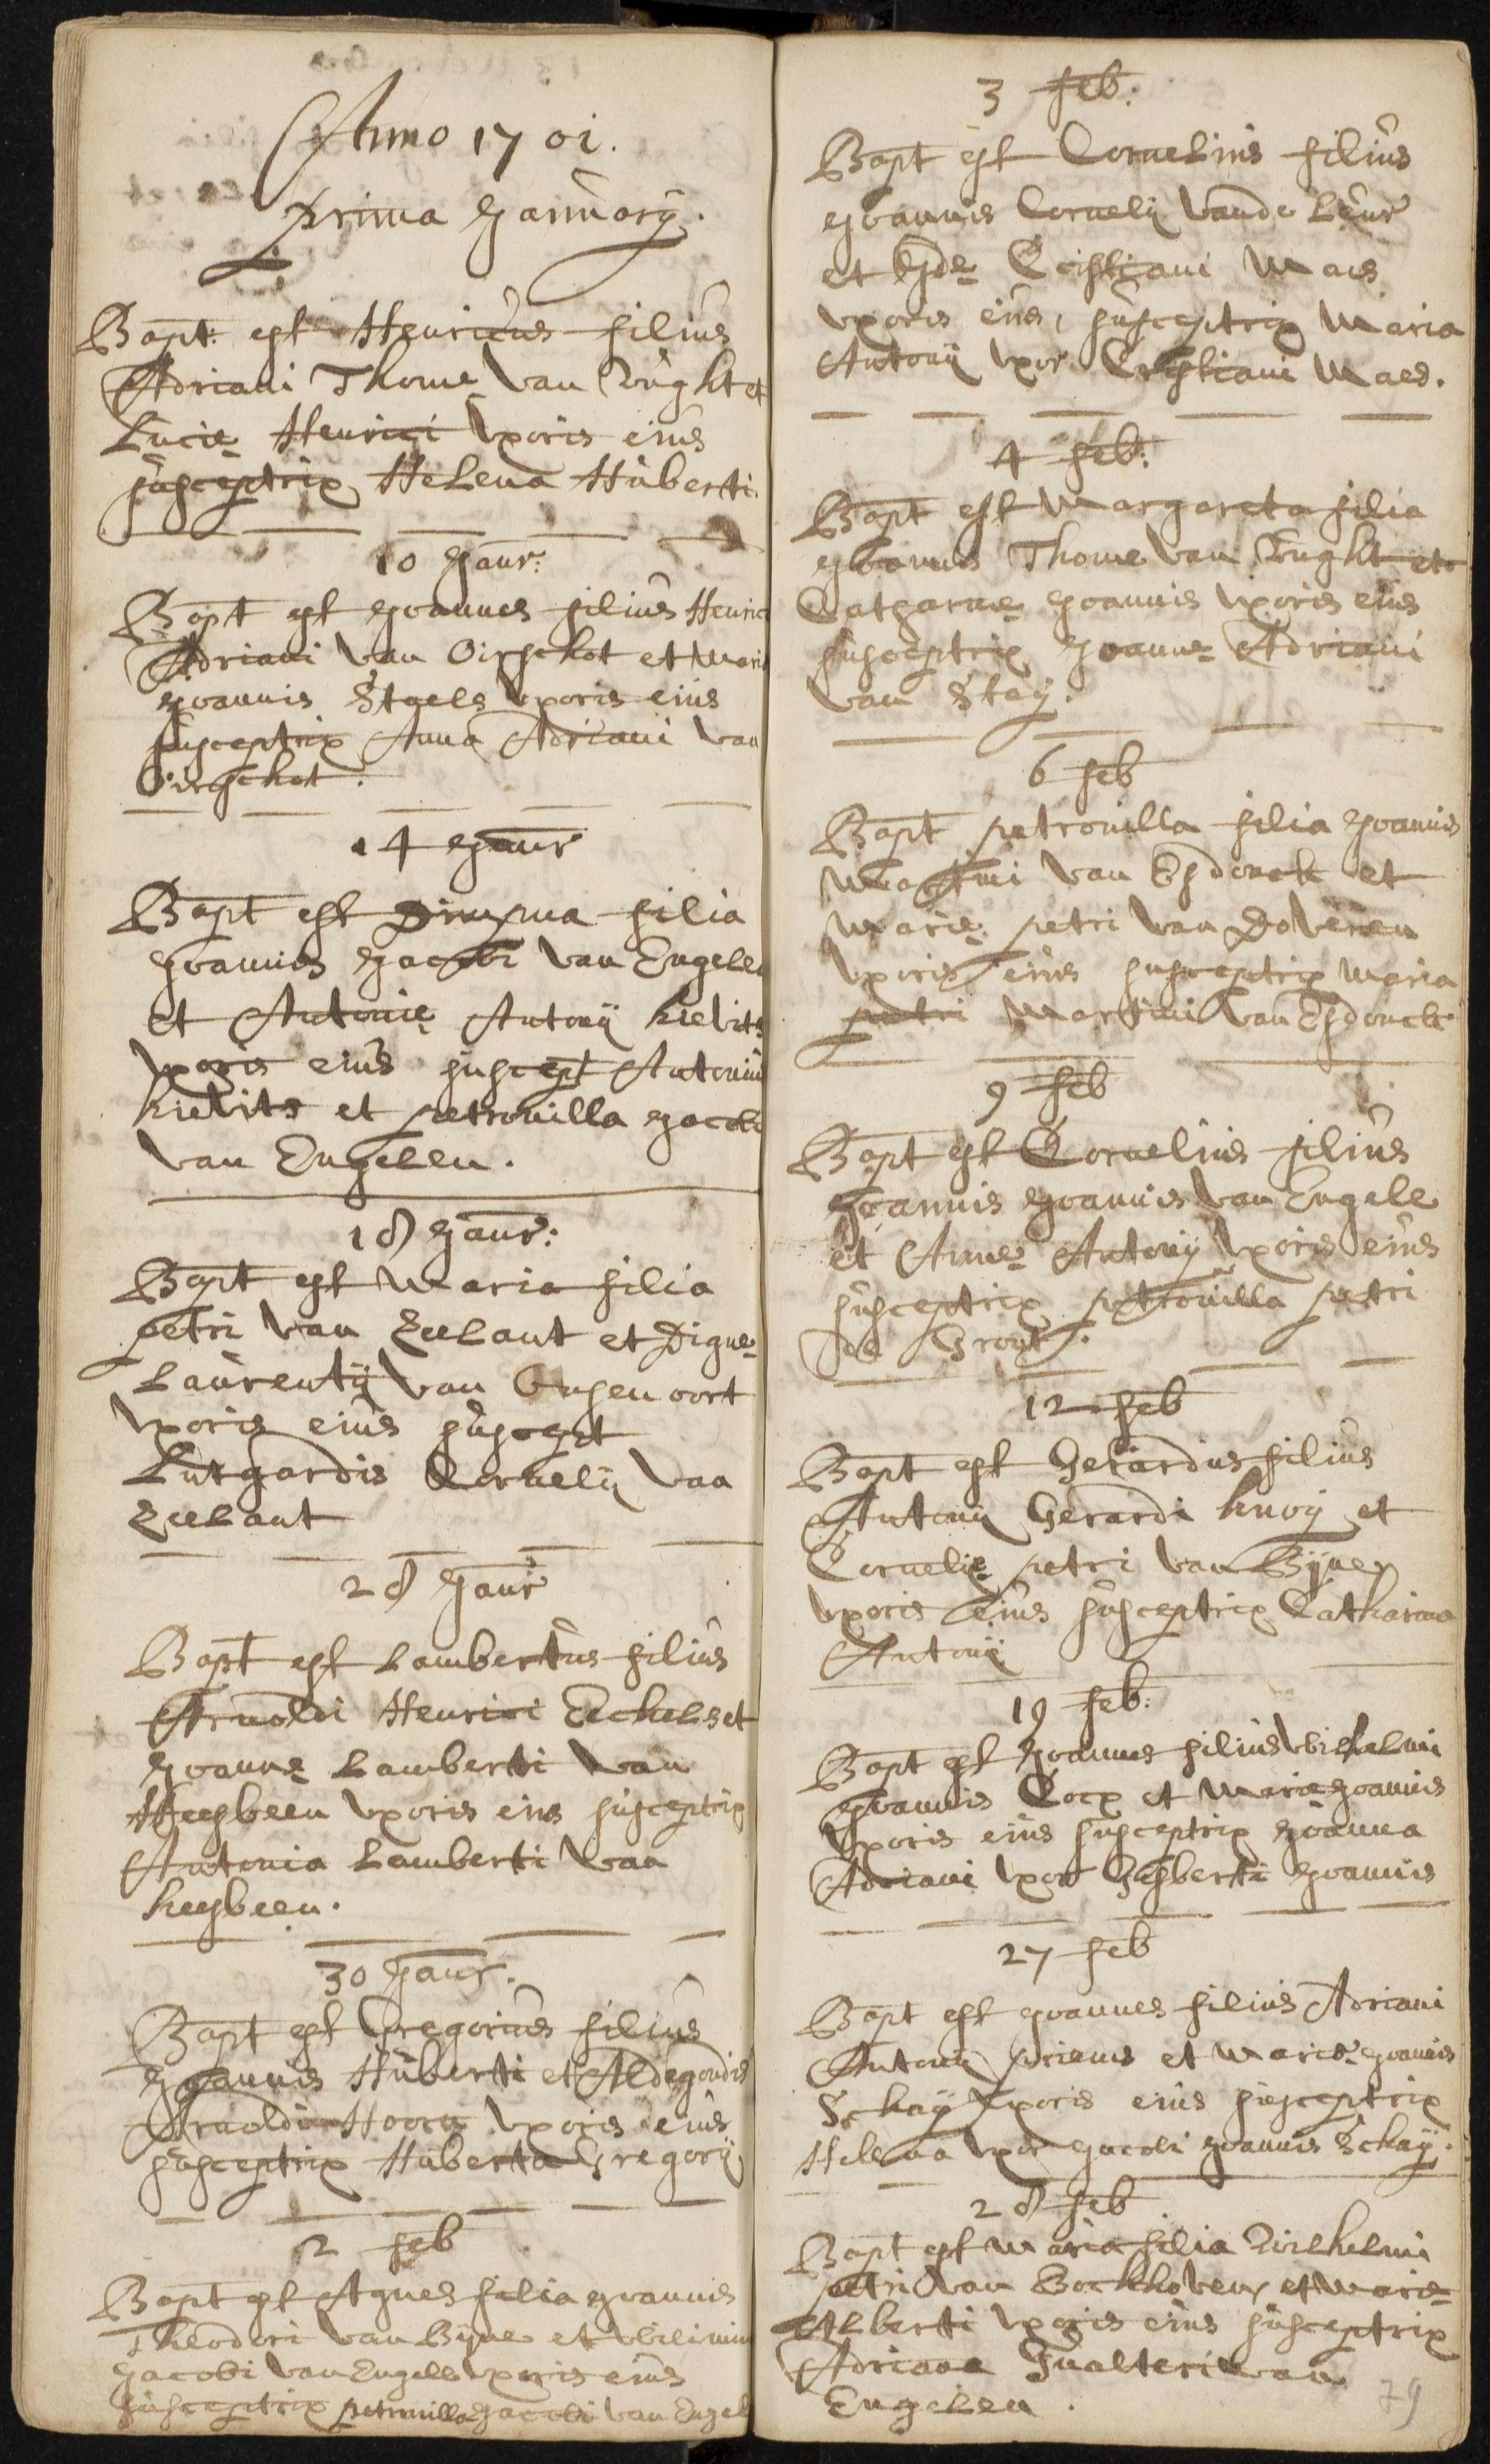 Anno 1701.
prima Januarij.
Bapt: est Henricus filius
Adriani Thome van Bught et
Lucie Henrici Vxoris eius
susceptrix Helena Huberti.
10 Janr:
Bapt est Joannes filius Henrici
Adriani van Oirschot et Mari
Joannis Staels Vxoris eius
susceptrix Anna Adriani van
Oirschot.
14 Janr
Bapt est filia
Joannis Jacobi van Engele
et Antonie Antonij kievits
Vxoris eius suscept Antoniu
kievits et petronilla Jacobi
van Engelen.
18 Janr:
Bapt est Maria filia
petri van Zeelant et Digne
Laurentij van oort
Vxoris eius suscept
Lutgardis Cornelij van
Zeelant
28 Janr
Bapt est Lambertus filius
Arnoldi Henrici Eckels et
Joanne Lamberti van
Heesbeen Vxoris eius susceptrix
Antonia Lamberti van
heesbeen.
30 Janr.
Bapt est Gregorius filius
Joannis Huberti et Aldegondis
Arnoldi Hoorn Vxoris eius
susceptrix Huberta Gregorij
2 feb
Bapt est Agnes filia Joannis
Theodori van Bijne et
Jacobi van Engele Vxoris eius
susceptrix petronilla Jacobi van Engel
3 feb:
Bapt est Cornelius filius
Joannis Cornelij vande Leur
et Maes
Vxoris eius, susceptrix Maria
Antonij Vxor Cristiani Maes.
4 feb:
Bapt est Margareta filia
Joannis Thome van Bught et
Catharine Joannis Vxoris eius
susceptrix Joanne Adriani
van Staij.
6 feb
Bapt petronilla filia Joannis
Martini van Esdonck et
Marie petri van Doveren
Vxoris eius susceptrix Maria
petri Martini van Esdonck
9 feb
Bapt est Cornelius filius
Joannis Joannis van Engele
et Anne Antonij Vxoris eius
susceptrix petronilla petri
de Groot.
12 feb
Bapt est Gerardus filius
Antonij Gerardi knoij et
Cornelie petri van Bijnen
Vxoris eius susceptrix Catharina
Antonij
19 feb:
Bapt est Joannes filius Wilhelmi
Joannis Cocx et Marie Joannis
Vxoris eius susceptrix Joanna
Adriani Vxor Gisberti Joannis
27 feb
Bapt est Joannes filius Adriani
Antonij et Marie Joannis
Schaij Vxoris eius susceptrix
Helena Vxor Jacobi Joannis Schaij.
28 feb
Bapt est Maria filia Wilhelmi
petri van Bockhoven et Marie
Alberti Vxoris eius susceptrix
Adriana Gualteri van
Engelen.
79